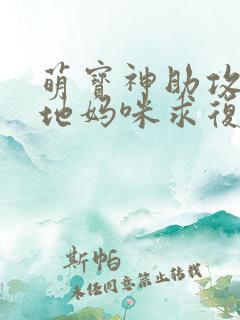 萌寶神助攻
地媽咪求復
斯帕
未经同意禁止转载